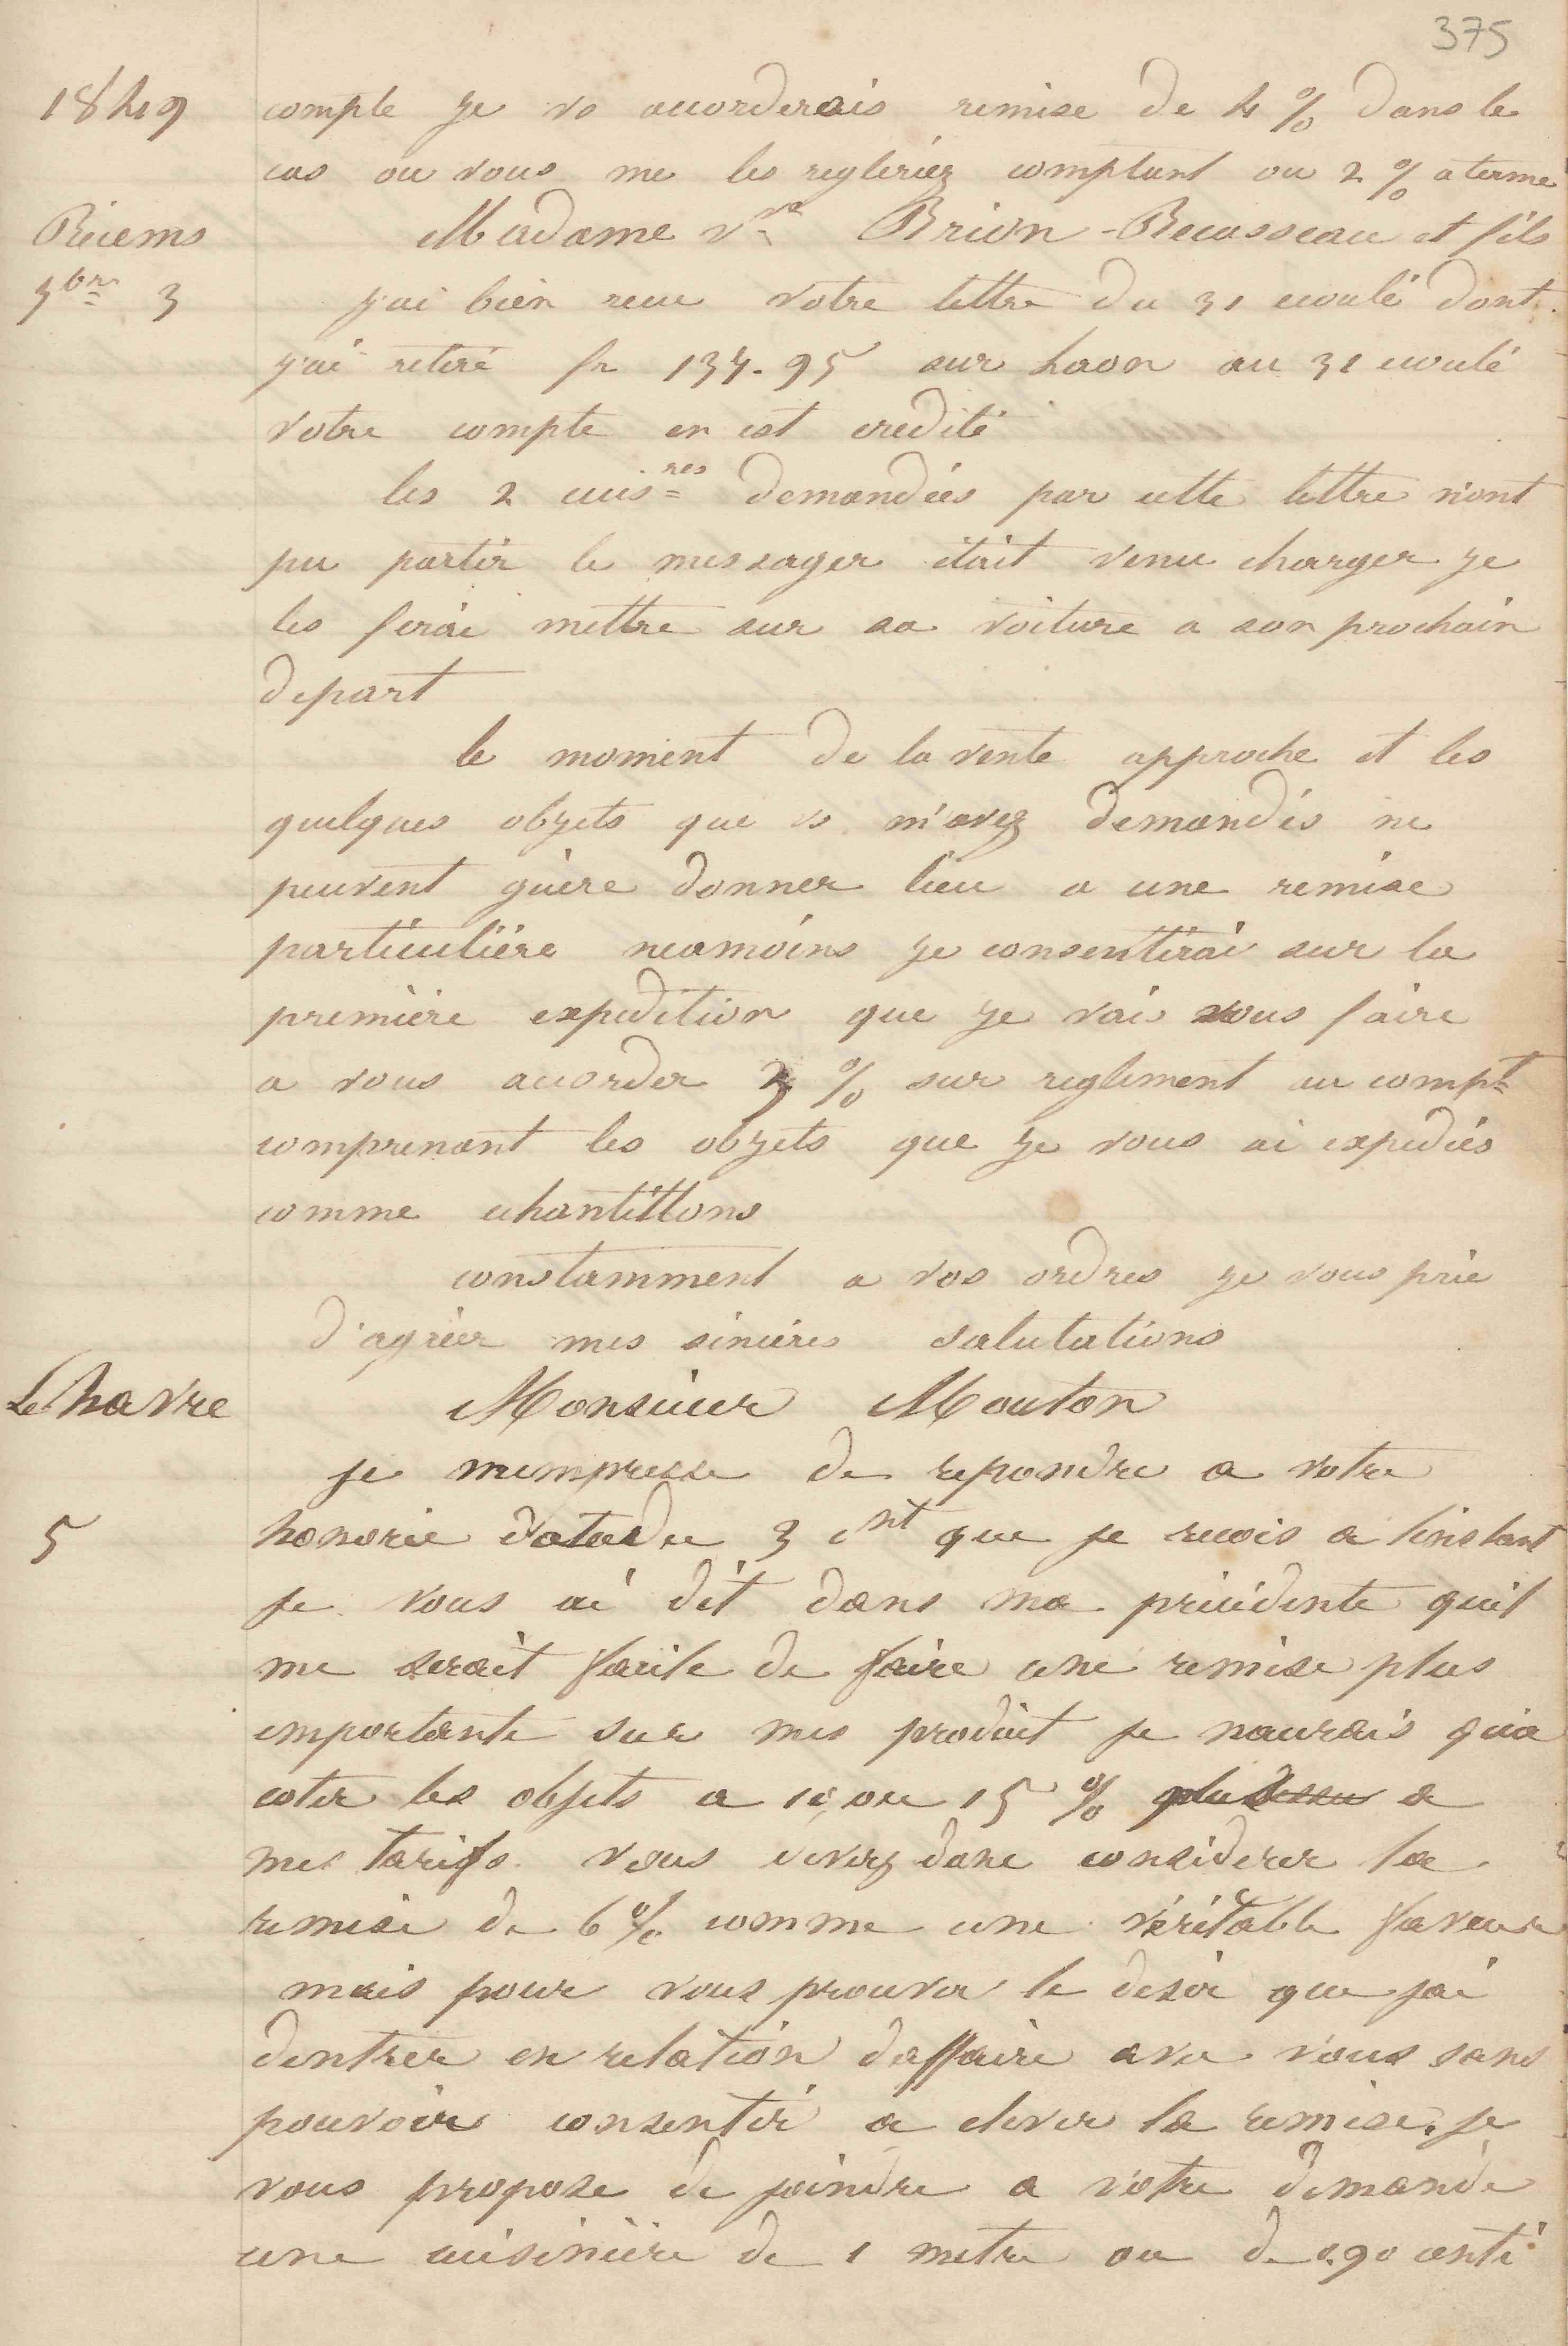 375
1849 compte je vs accorderais remise de 4 % dans le
cas ou vous me les regleriez comptant ou 2 % a terme
Reiems Madame Vve Brion-Becasseau et fils
7bre 3 j'ai bien recu votre lettre du 31 ecoulé dont
j'ai retiré fr 137.95 sur Laon au 31 ecoulé
votre compte en est credité
les 2 cuisres demandées par cette lettre n'ont
pu partir le messager était venu charger je
les ferai mettre sur sa voiture a son prochain
depart
le moment de la vente approche et les
quelques objets que vs m'avez demandés ne
peuvent guère donner lieu a une remise
particulière neamoins je consentirai sur la
première expedition que je vai vous faire
a vous accorder 3 % sur reglement au compt
comprenant les objets que je vous ai expediés
comme echantillons
constamment a vos ordres je vous prie
d'agréer mes sincères salutations
Le havre Monsieur Mouton
je mempresse de repondre a votre
5 honorée datée du 3 cnt que je recois a linstant
je vous ai dit dans ma précédente quil
me serait facile de faire une remise plus
emportante sur mes produit je naurais qua
coter les objets a 10 ou 15 % plus dessu a
mes tarifs vous devez donc considerer la
remise de 6 % comme une véritable faveur
mais pour vous prouver le desir que jai
dentrer en relation daffaire avec vous sans
pouvoir consentir a elever la remise. je
vous propose de joindre a votre demande
une cuisinière de 1 metre ou de 0.90 centi